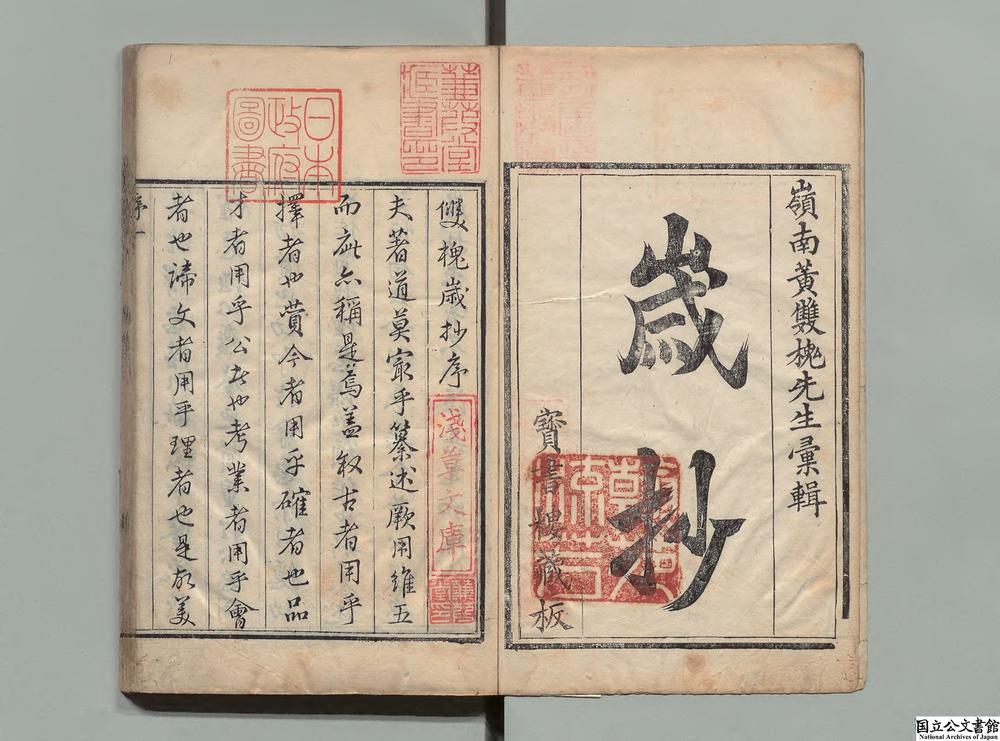 嶺南黃雙槐先生彙輯
歲抄
寶書樓藏板
雙槐歲抄序
夫著道莫寂乎纂述厥用維五
而疵亦稱是焉蓋敘古者用乎
擇者也賞今者用乎確者也品
才者用乎公者也考業者用乎會
者也諦文者用乎理者也是故美
序一
日本
政府
圖書
蒹葭堂
淺草文庫
国立公文書館
National Archives of Japan